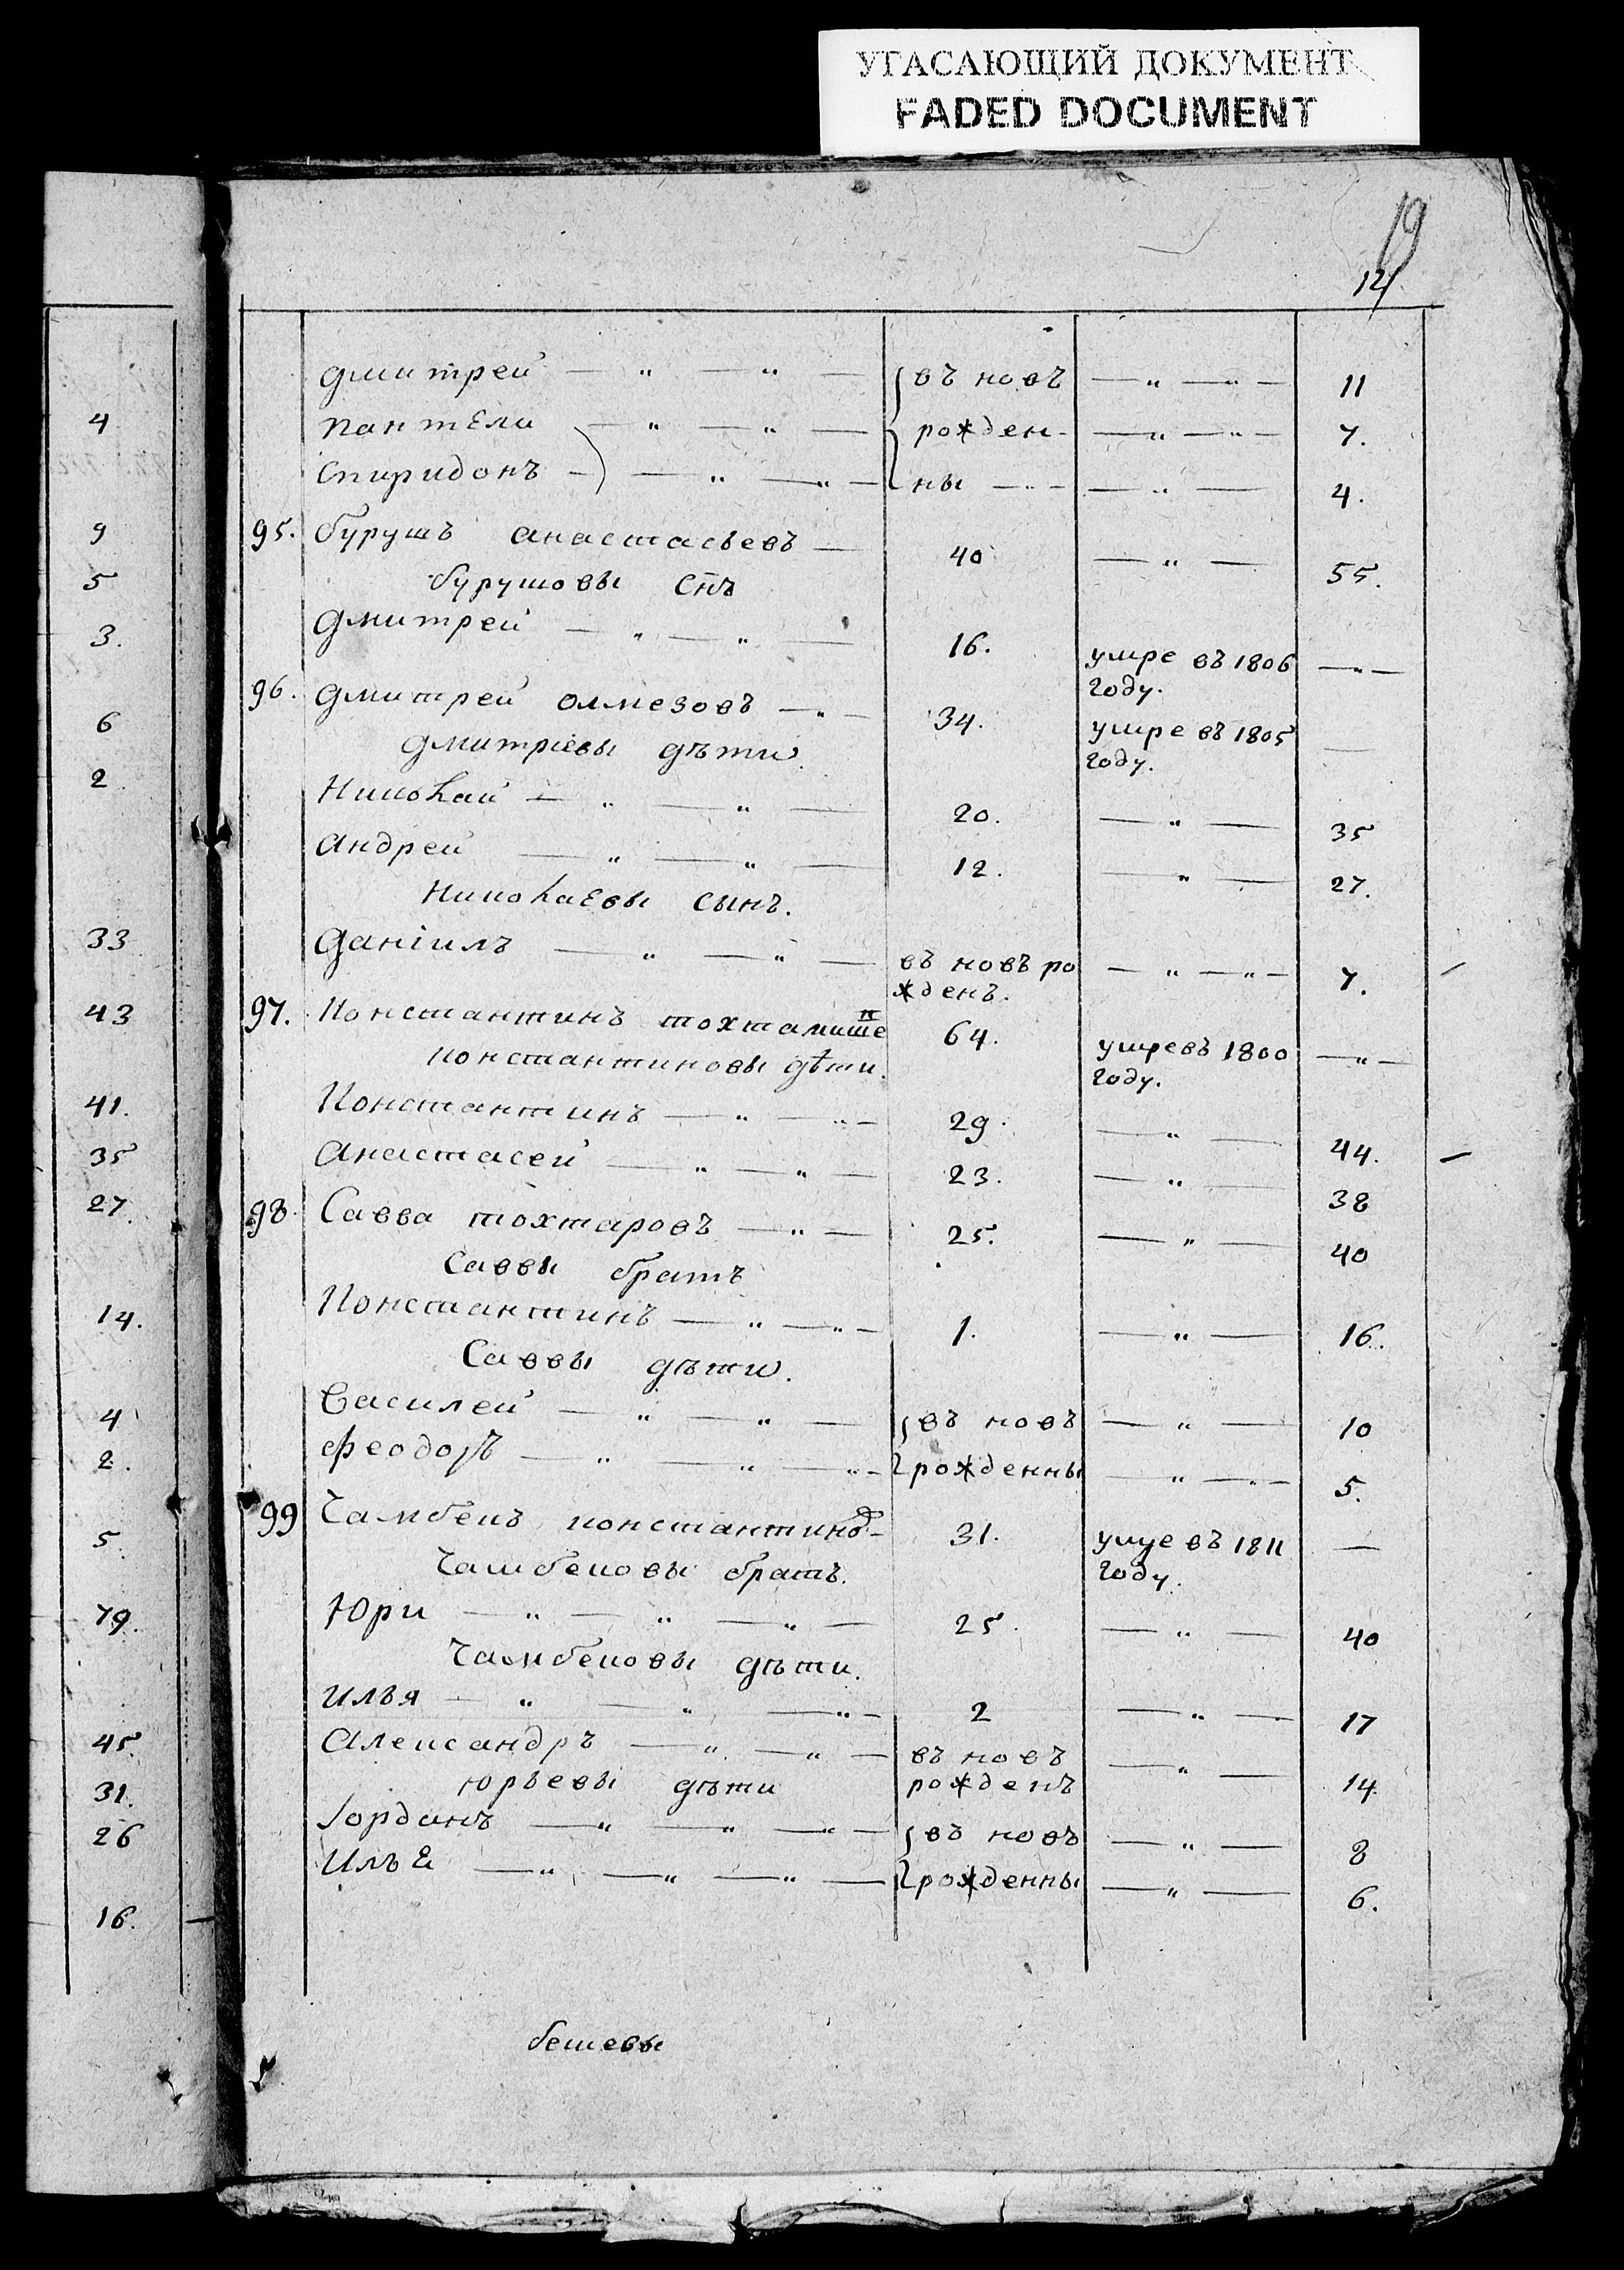 УГАСАЮЩИЙ ДОКУМЕНТ
FADED DOCUMENT
19
12
4
9
5
3.
6
2
33
43
41.
35
27.
14.
4
2.
5.
79.
45.
31.
26
16.
Дмитрей — „ — „ — въ новъ — „ — „ — 11
Пантели — „ — „ — рожден- — „ — „ — 7.
Спиридонъ — — „ — „ — ны — „ — — „ — 4.
95. Бурушъ анастасьевъ — 40 — „ — 55.
бурушовы снъ
Дмитрей — „ — „ — 16. умре въ 1806 — „ —
году.
96. Дмитрей олмезовъ — „ — 34. умре въ 1805 —
Дмитріевы дѣти. году.
Николай — „ — „ — 20. — „ — 35
андрей — „ — „ — 12. — „ — 27.
Николаевы сынъ.
Даніилъ — „ — „ — въ новъ ро — „ — „ — 7.
жденъ.
97. Константинъ тохтамише 64. умре въ 1800 — „ —
константиновы дѣти. году.
Константинъ — „ — „ — 29. — „ — 44.
анастасей — „ — „ — 23. — „ — 38
98. Савва тохтаровъ — „ — 25. — „ — 40
Саввы братъ
Константинъ — „ — „ — 1. — „ — 16.
Саввы дѣти.
Василей — „ — „ — въ новъ — „ — 10
Феодоръ — „ — „ — „ — рожденны — „ — „ — 5.
99 Чамбекъ константинов- 31. умре въ 1811 —
Чамбековы братъ. году.
Юри — „ — „ — „ — 25. — „ — 40
Чамбековы дѣти.
илья — „ — „ — „ — 2 — „ — 17
александръ — „ — „ — въ новъ — „ — 14
юрьевы дѣти рожденъ
Іорданъ — „ — „ — „ — въ новъ — „ — 8
Илья — „ — „ — „ — рожденны — „ — 6.
бешевы